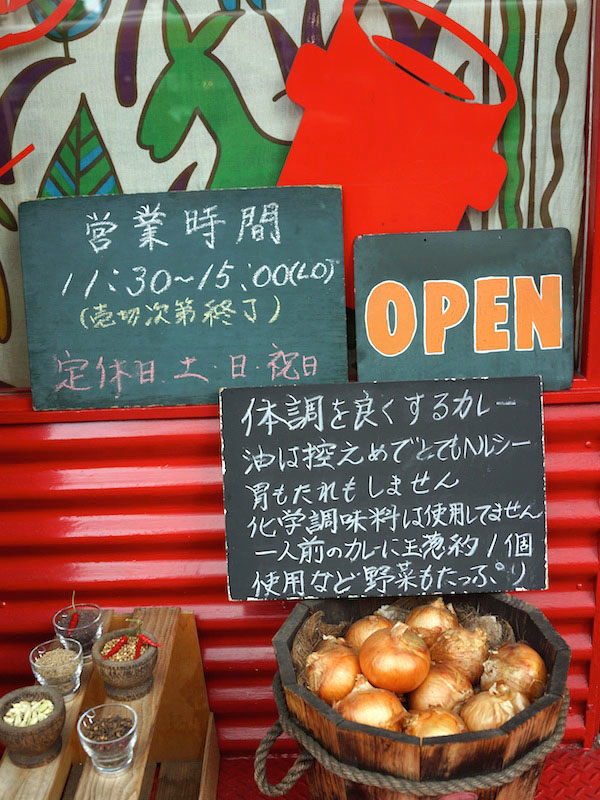 営業時間
11:30~15:00(LO)
(売切次第終了)
定休日.土・日・祝日
OPEN
体調を良くするカレー
油は控えめでとてもヘルシー
胃もたれもしません
化学調味料は使用してません
一人前のカレーに玉葱約1個
使用など野菜もたっぷり